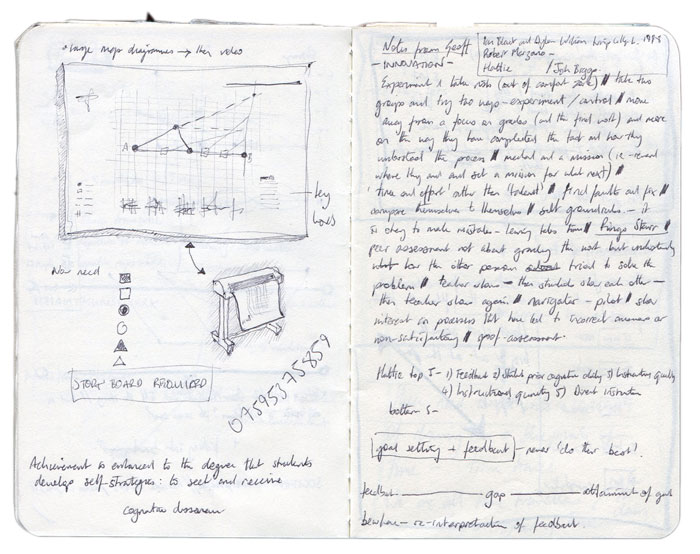 • large map diagrammes → then video
A
B
key
boxes
Now need
STORY BOARD REQUIRED
07595375859
Achievement is enhanced to the degree that students
develop self-strategies: to seek and receive
cognitive dissonance
Notes from Geoff
- INNOVATION -
Paul Black and Dylan William 1998
Robert Marzano -
Hattie / John Biggs
Experiment & take risks (out of comfort zone) // take two
groups and try two ways - experiment / control // move
away from a focus on grades (and the final work) and more
on the way they have completed the task and how they
understood the process // medal and a mission (ie - reward
where they and set a mission for what next) //
'time and effort' rather than 'talent' // find faults and fix //
compare themselves to themselves // set groundrules - it
is okay to make mistakes - learning takes time // Ringo Starr //
peer assessment not about grading the work but understanding
what how the other person tried to solve the
problem // teacher show - then students show each other -
then teacher show again // navigator - pilot // show
interest in processes that have led to incorrect answers or
non-satisfactory // spoof-assessment.
Hattie top 5 - 1) Feedback 2) Students prior cognitive ability 3) Instruction quality
4) Instructional quantity 5) Direct instruction
bottom 5 -
goal setting + feedback - never 'do their best'.
feedback gap attainment of goal
beware - re-interpretation of feedback.